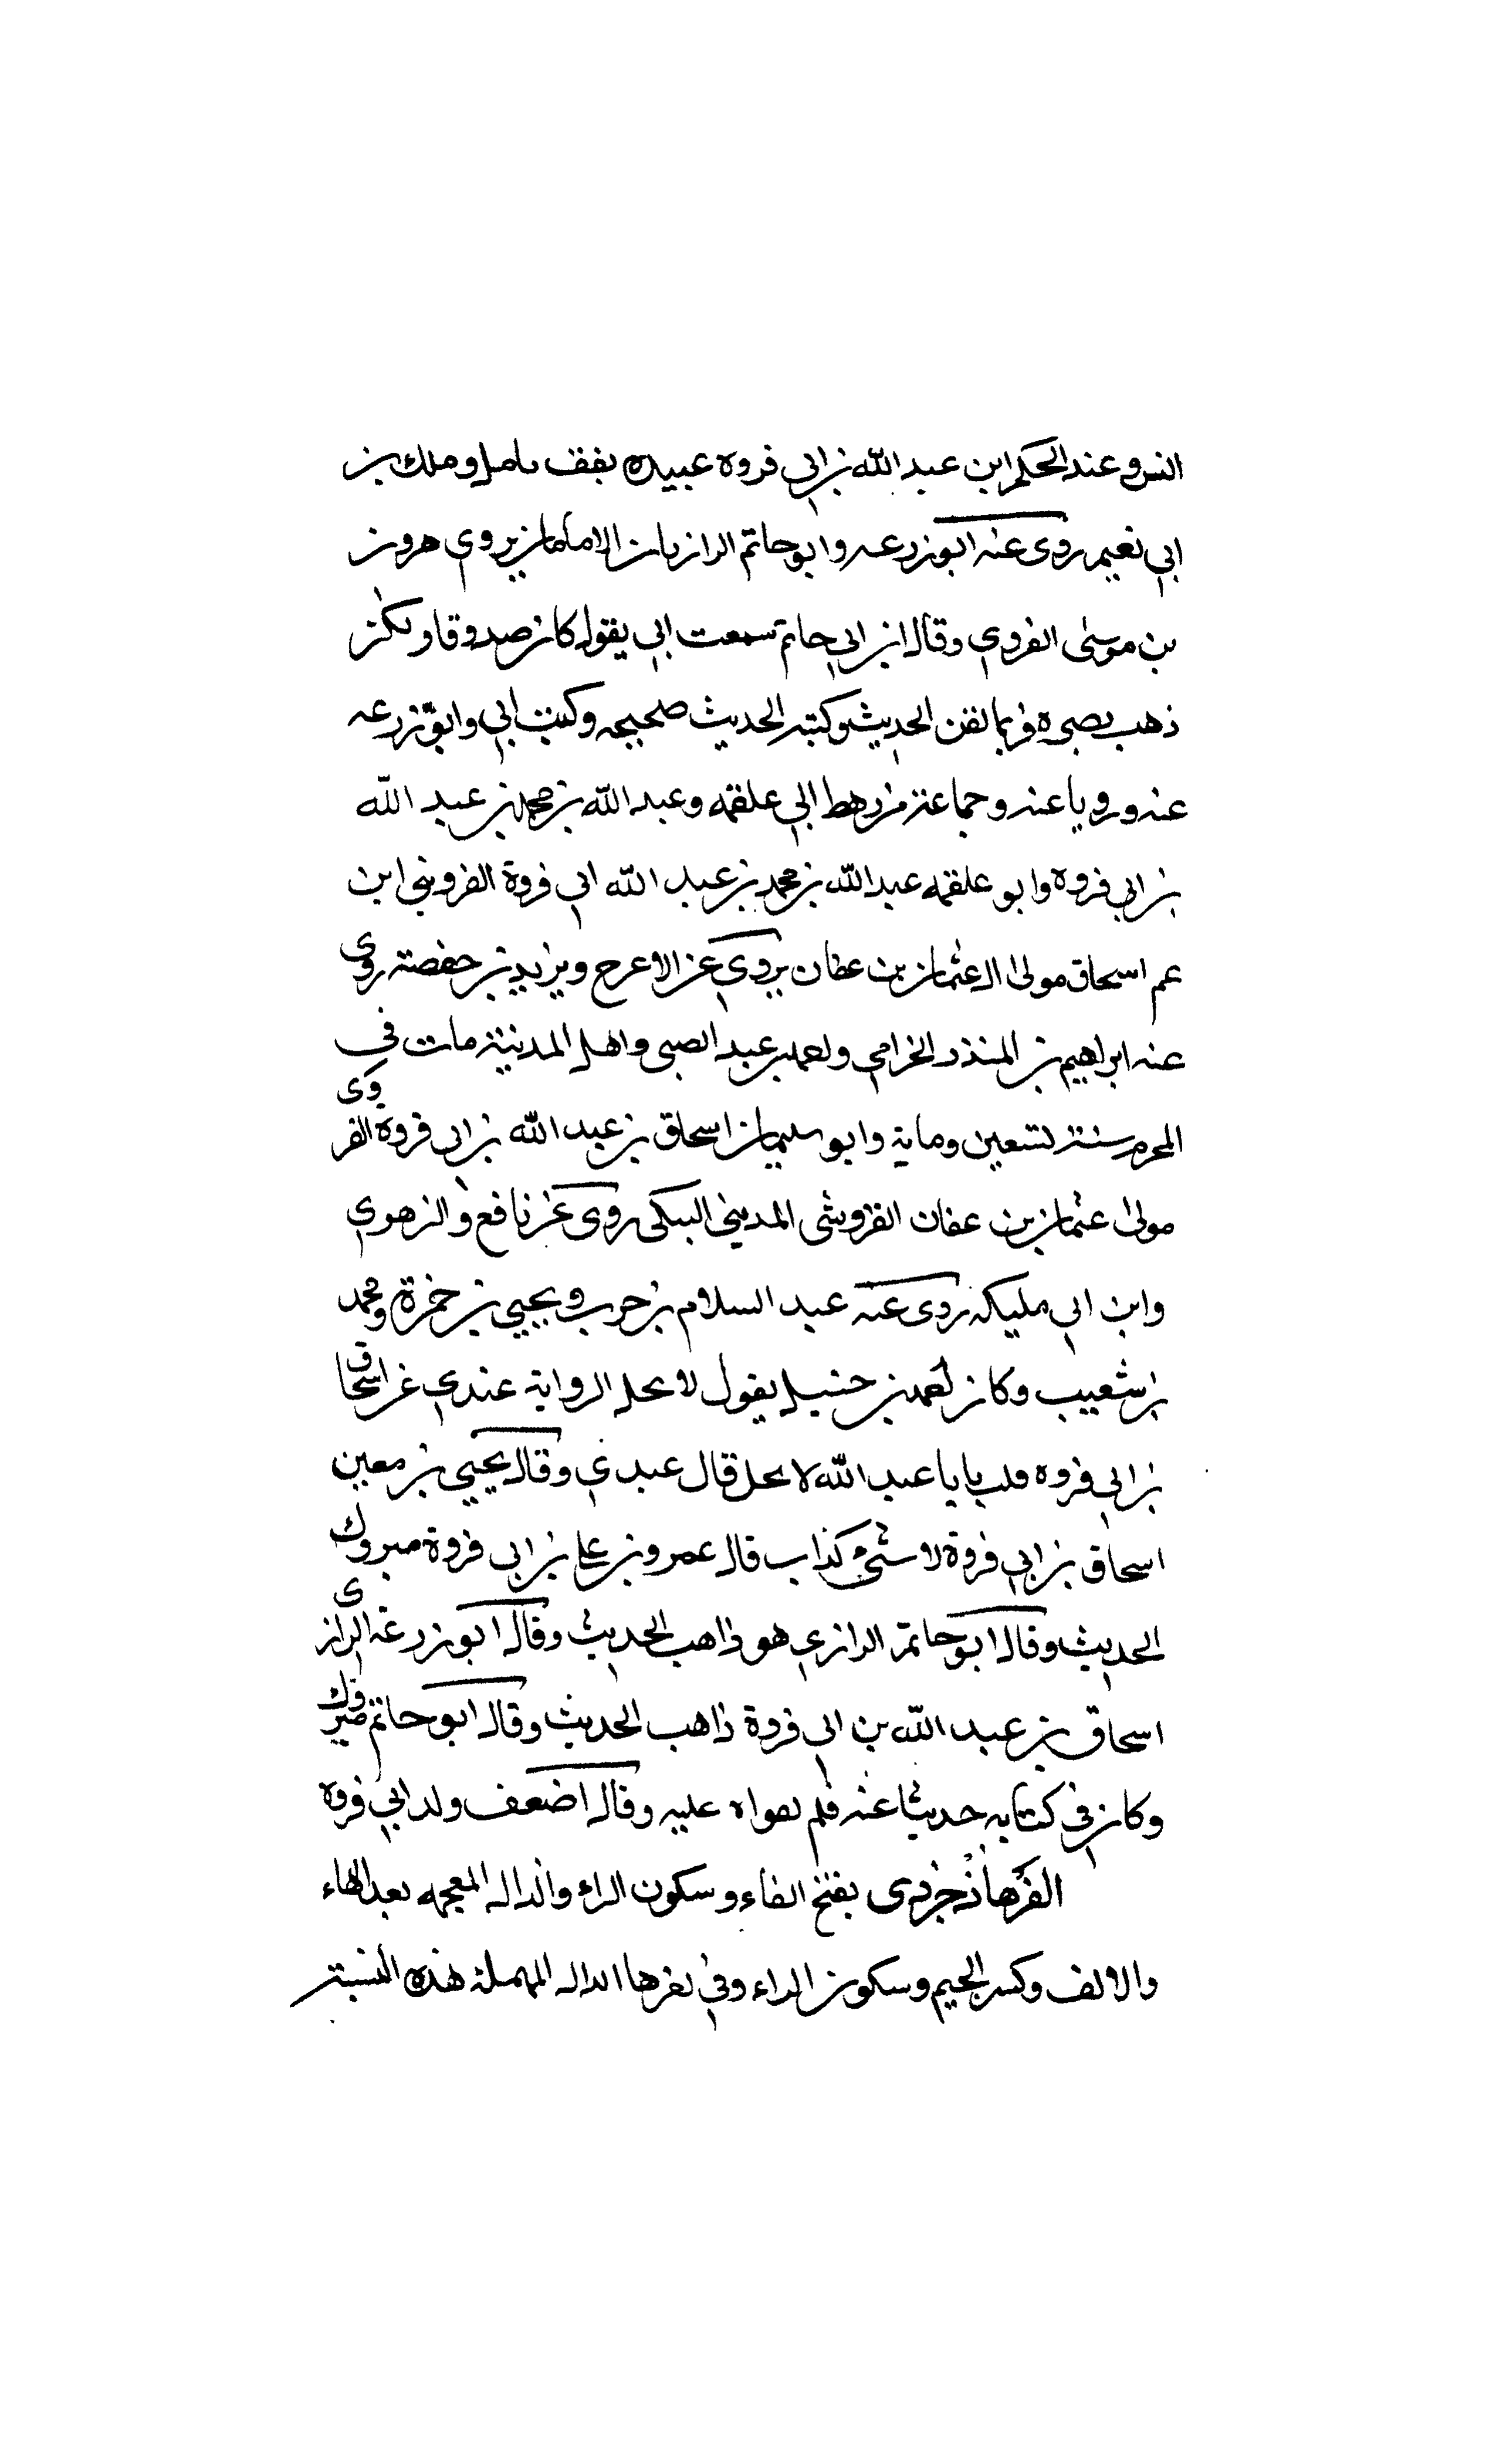 انس وعند الحكم ابن عبد الله بن ابي فروه عبيده وملك بن
ابي نعيم روى عنه ابو زرعه وابو حاتم الرازيان الامامان يروى هرون
بن موسى الفروي وقال ابن ابي حاتم سمعت ابي يقول كان صدوقا ولكن
ذهب بصره فربما لقن الحديث وكتبه الحديث صحيحه وكتب ابي وابو زرعه
عنه ورويا عنه وجماعة من رهط ابي علقمه وعبد الله بن محمد بن عبد الله
بن ابي فروه وابو علقمه عبد الله بن محمد بن عبد الله ابي فروة الفروي ابن
عم اسحاق مولى ال عثمان بن عفان يروي عن الاعرج ويزيد بن حفصة روى
عنه ابراهيم بن المنذر الخزامي واحمد بن عبد الضبي واهل المدينة مات في
المحرم سنة تسعين ومايه وابو سليمان اسحاق بن عبد الله بن ابي فروة الفروى
مولى عثمان بن عفان القروشى المديني روى عن نافع والزهوي
وابن ابي مليكه روى عنه عبد السلام بن حرب ويحيي بن حمزة ومحمد
بن شعيب وكان احمد بن حنبل يقول لا تحل الرواية عندي عن اسحاق
بن ابي فروه قلت يابا عبد الله لا تحل قال عندي وقال يحيي بن معين
اسحاق بن ابي فروة لا شئ كذاب قال عمرو بن علي بن ابي فروة متروك
الحديث وقال ابو حاتم الرازي هو ذاهب الحديث وقال ابو زرعة الرازى
اسحاق بن عبد الله بن ابي فروة ذاهب الحديث وقال ابو حاتم متروك
وكان في كتابه حديثا عنه فلم يقراه عليه وقال اضعف ولد ابي فروه
الفرهاذجردى بفتح الفاء وسكون الراء والذال المعجمه بعد الهاء
والالف وكسر الجيم وسكون الراء وفي اخرها الدال المهملة هذه النسبة